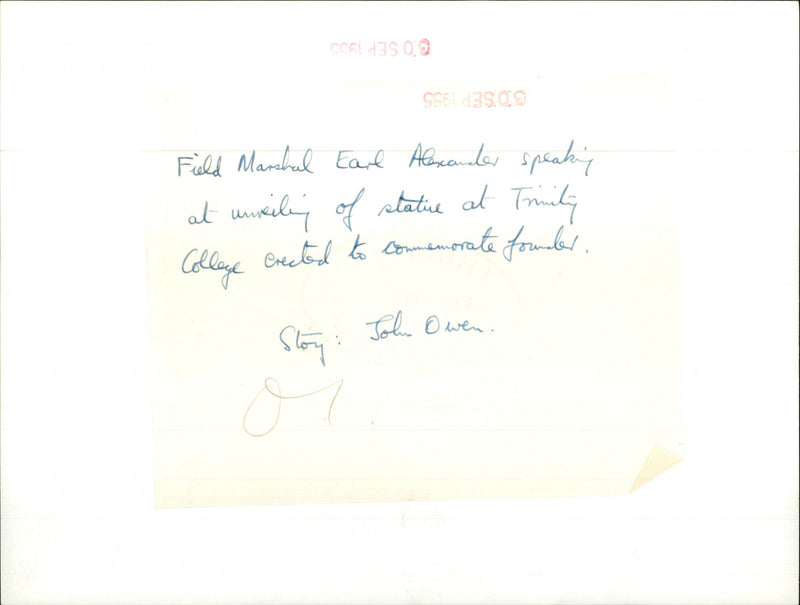 30 SEP 1955
30 SEP 1955
Field Marshal Earl Alexander speaking
at unveiling of statue at Trinity
College erected to commemorate founder.
Story: John Owen.